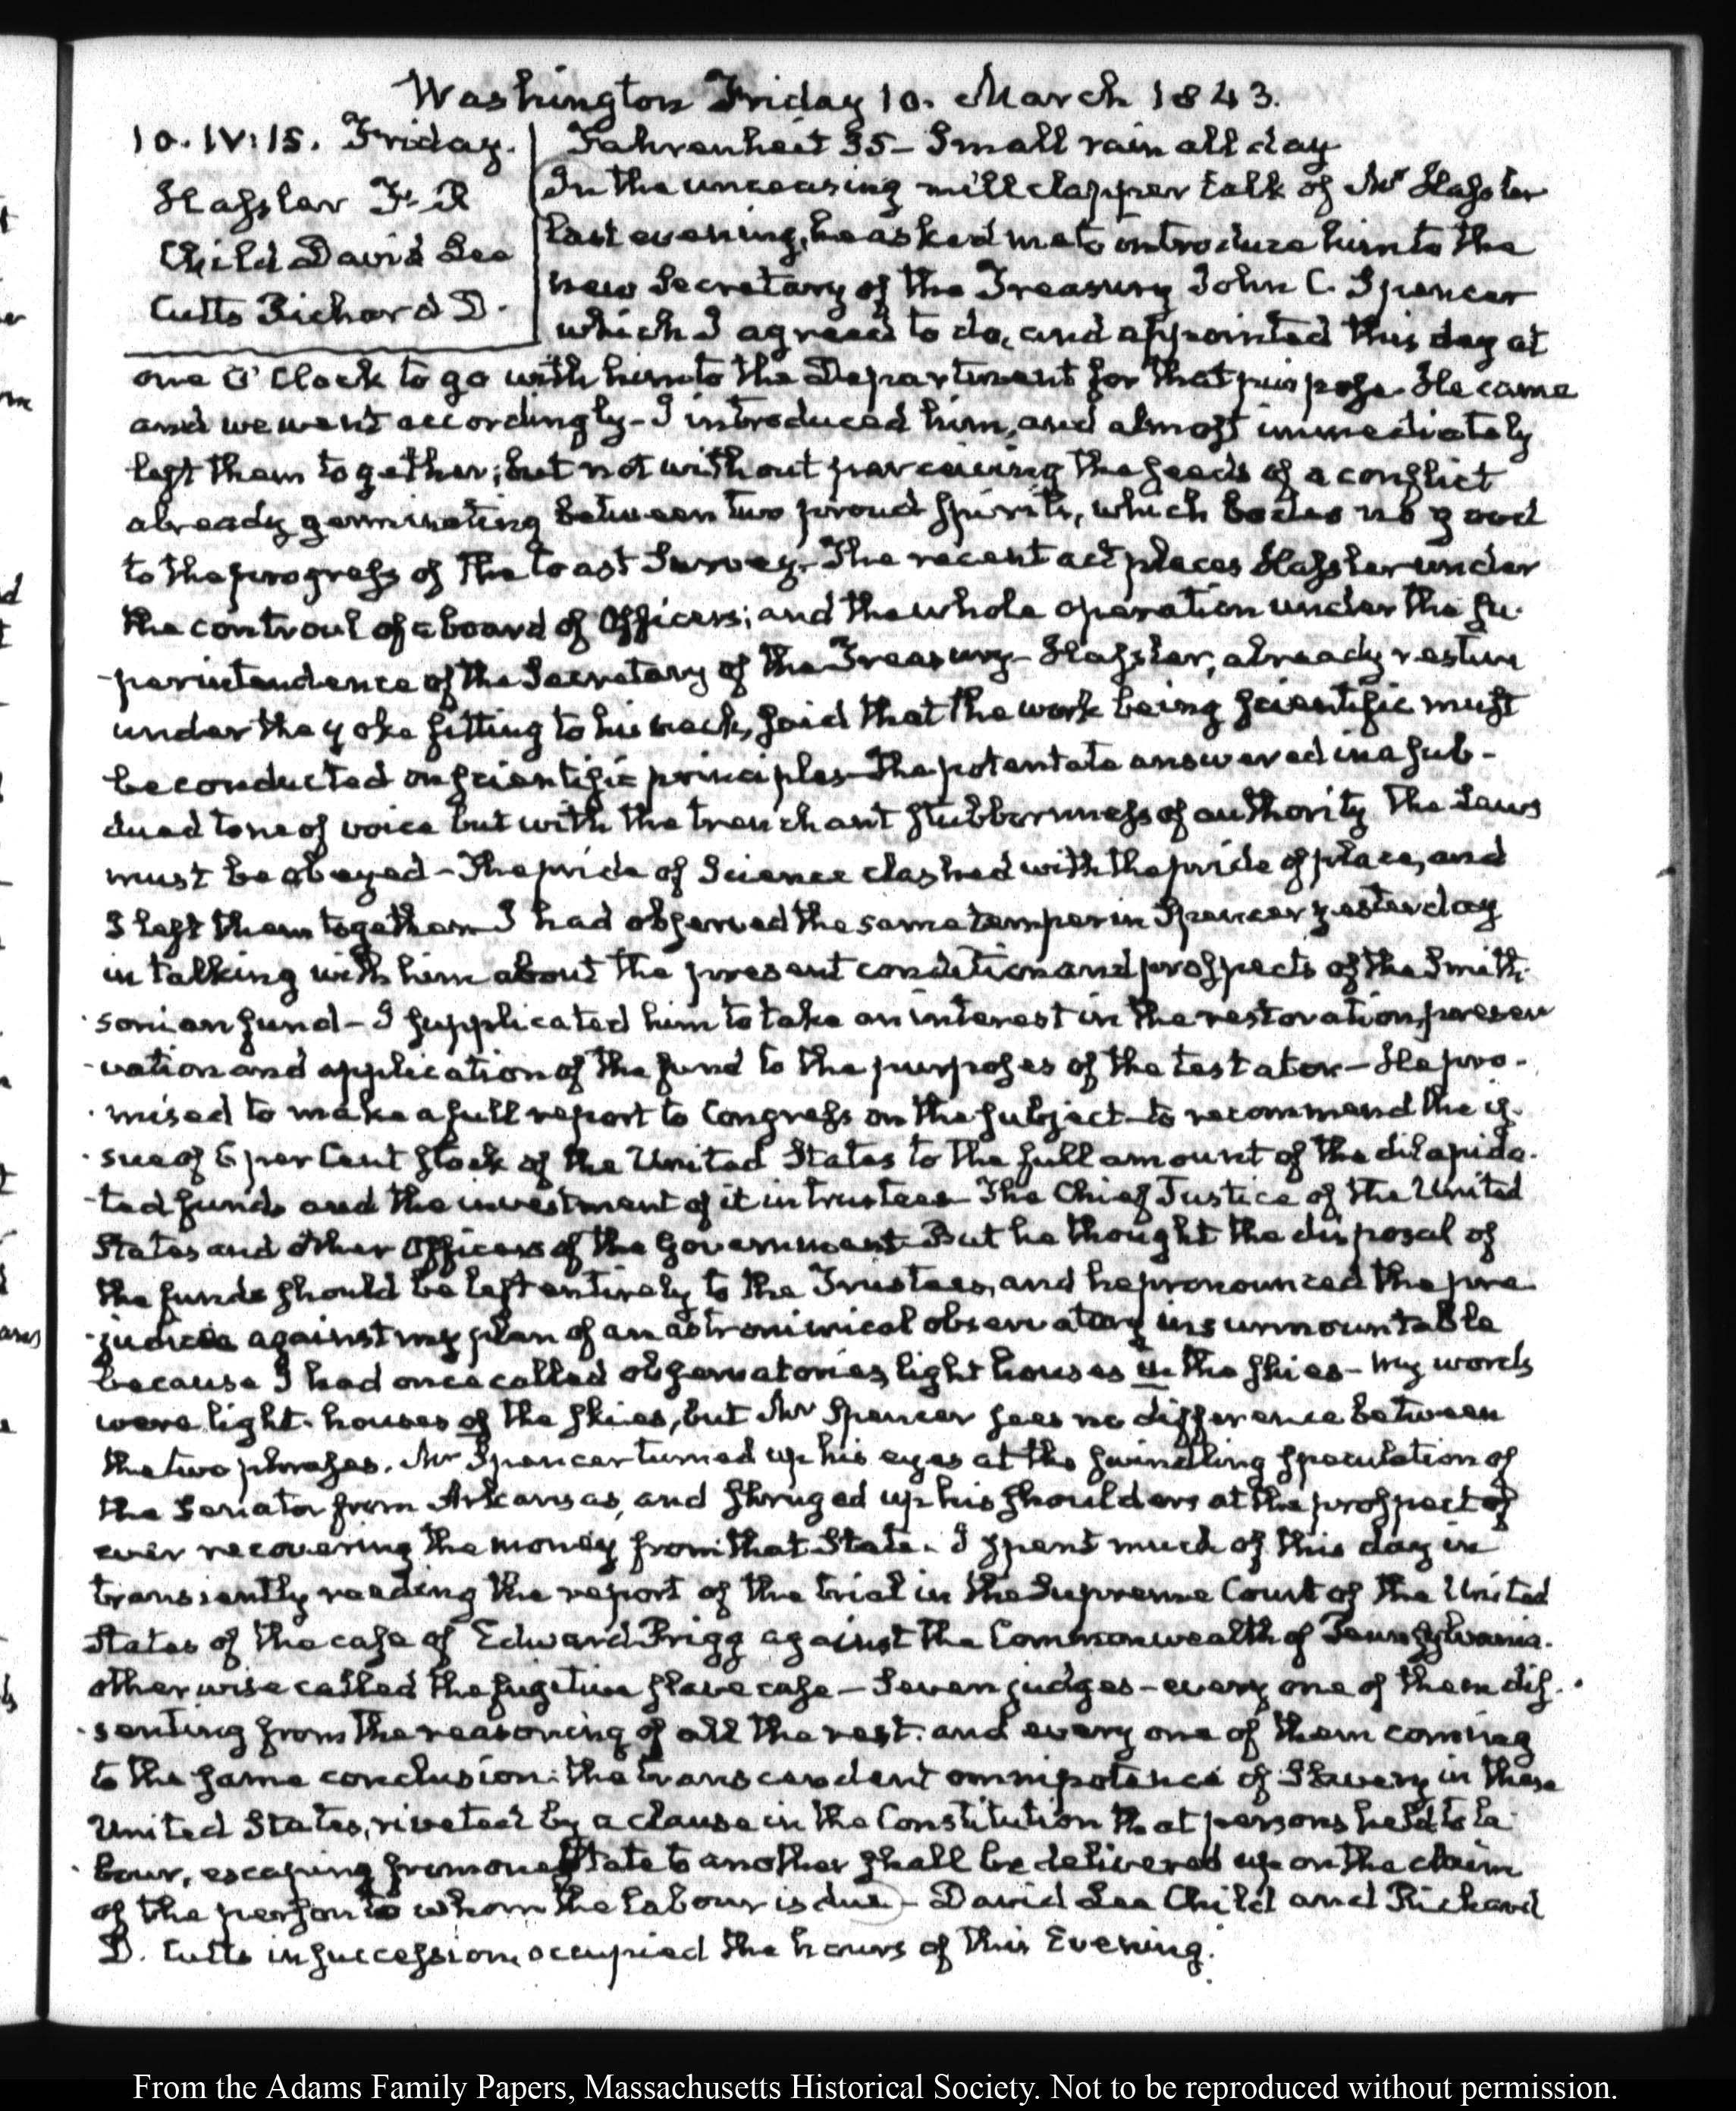 Washington Friday 10. March 1843.
10. IV:15. Friday.
Hassler F. R
Child David Lee
Cutts Richard D.
Fahrenheit 35 - Small rain all day
In the unceasing mill clapper talk of Mr Hassler
last evening, he asked me to introduce him to the
new Secretary of the Treasury John C. Spencer
which I agreed to do, and appointed this day at
one O'Clock to go with him to the Department for that purpose. He came
and we went accordingly - I introduced him, and almost immediately
left them together; but not without perceiving the seeds of a conflict
already germinating between two proud spirits, which bodes no good
to the progress of the Coast Survey - The recent act places Hassler under
the controul of a board of Officers; and the whole operation under the su-
perintendence of the Secretary of the Treasury - Hassler, already restive
under the yoke fitting to his neck, said that the work being scientific must
be conducted on scientific principles - The potentate answered in a sub-
dued tone of voice but with the trenchant stubbornness of authority The Laws
must be obeyed - The pride of Science clashed with the pride of place, and
I left them together - I had observed the same temper in Spencer yesterday
in talking with him about the present condition and prospects of the Smith-
sonian fund - I supplicated him to take an interest in the restoration, preser
vation and application of the fund to the purposes of the testator - He pro-
mised to make a full report to Congress on the subject - to recommend the is-
sue of 6 per Cent stock of the United States to the full amount of the dilapida-
ted funds and the investment of it in trustees - The Chief Justice of the United
States and other Officers of the Government - But he thought the disposal of
the funds should be left entirely to the Trustees, and he pronounced the pre
judices against my plan of an astronimical observatory insurmountable
because I had once called observatories light houses in the skies - My words
were light-houses of the skies, but Mr Spencer sees no difference between
the two phrases. Mr Spencer turned up his eyes at the swindling speculation of
the Senator from Arkansas, and shruged up his shoulders at the prospect of
ever recovering the money from that State. I spent much of this day in
transiently reading the report of the trial in the Supreme Court of the United
States of the case of Edward Prigg against the Commonwealth of Pennsylvania.
otherwise called the fugitive slave case - Seven judges - every one of them dis-
senting from the reasoning of all the rest. and every one of them coming
to the same conclusion: the transcendent omnipotence of Slavery in these
United States, riveted by a clause in the Constitution that persons held to la-
bour, escaping from one State to another shall be delivered up on the claim
of the person to whom the labour is due - David Lee Child and Richard
D. Cutts in succession, occupied the hours of this Evening.
From the Adams Family Papers, Massachusetts Historical Society. Not to be reproduced without permission.